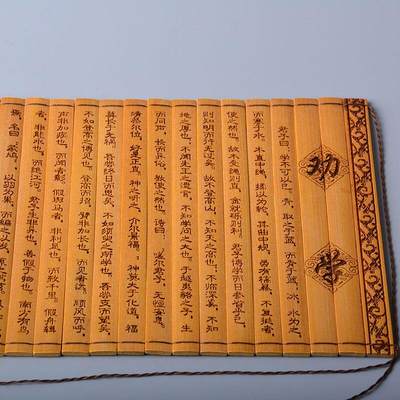 劝学
君子曰：学不可以已。青，取之于蓝，而青于蓝；冰，水为之，
而寒于水。木直中绳，輮以为轮，其曲中规，虽有槁暴，不复挺者，
使之然也。故木受绳则直，金就砺则利，君子博学而日参省乎己，
则知明而行无过矣。故不登高山，不知天之高也；不临深溪，不知
地之厚也；不闻先王之遗言，不知学问之大也。干越夷貉之子，生
而同声，长而异俗，教使之然也。诗曰：嗟尔君子，无恒安息。
靖恭尔位，好是正直。神之听之，介尔景福。神莫大于化道，福
莫长于无祸。吾尝终日而思矣，不如须臾之所学也；吾尝跂而望矣，
不如登高之博见也。登高而招，臂非加长也，而见者远；顺风而呼，
声非加疾也，而闻者彰。假舆马者，非利足也，而致千里；假舟楫
者，非能水也，而绝江河。君子生非异也，善假于物也。南方有鸟
焉，名曰蒙鸠，以羽为巢，而编之以发，